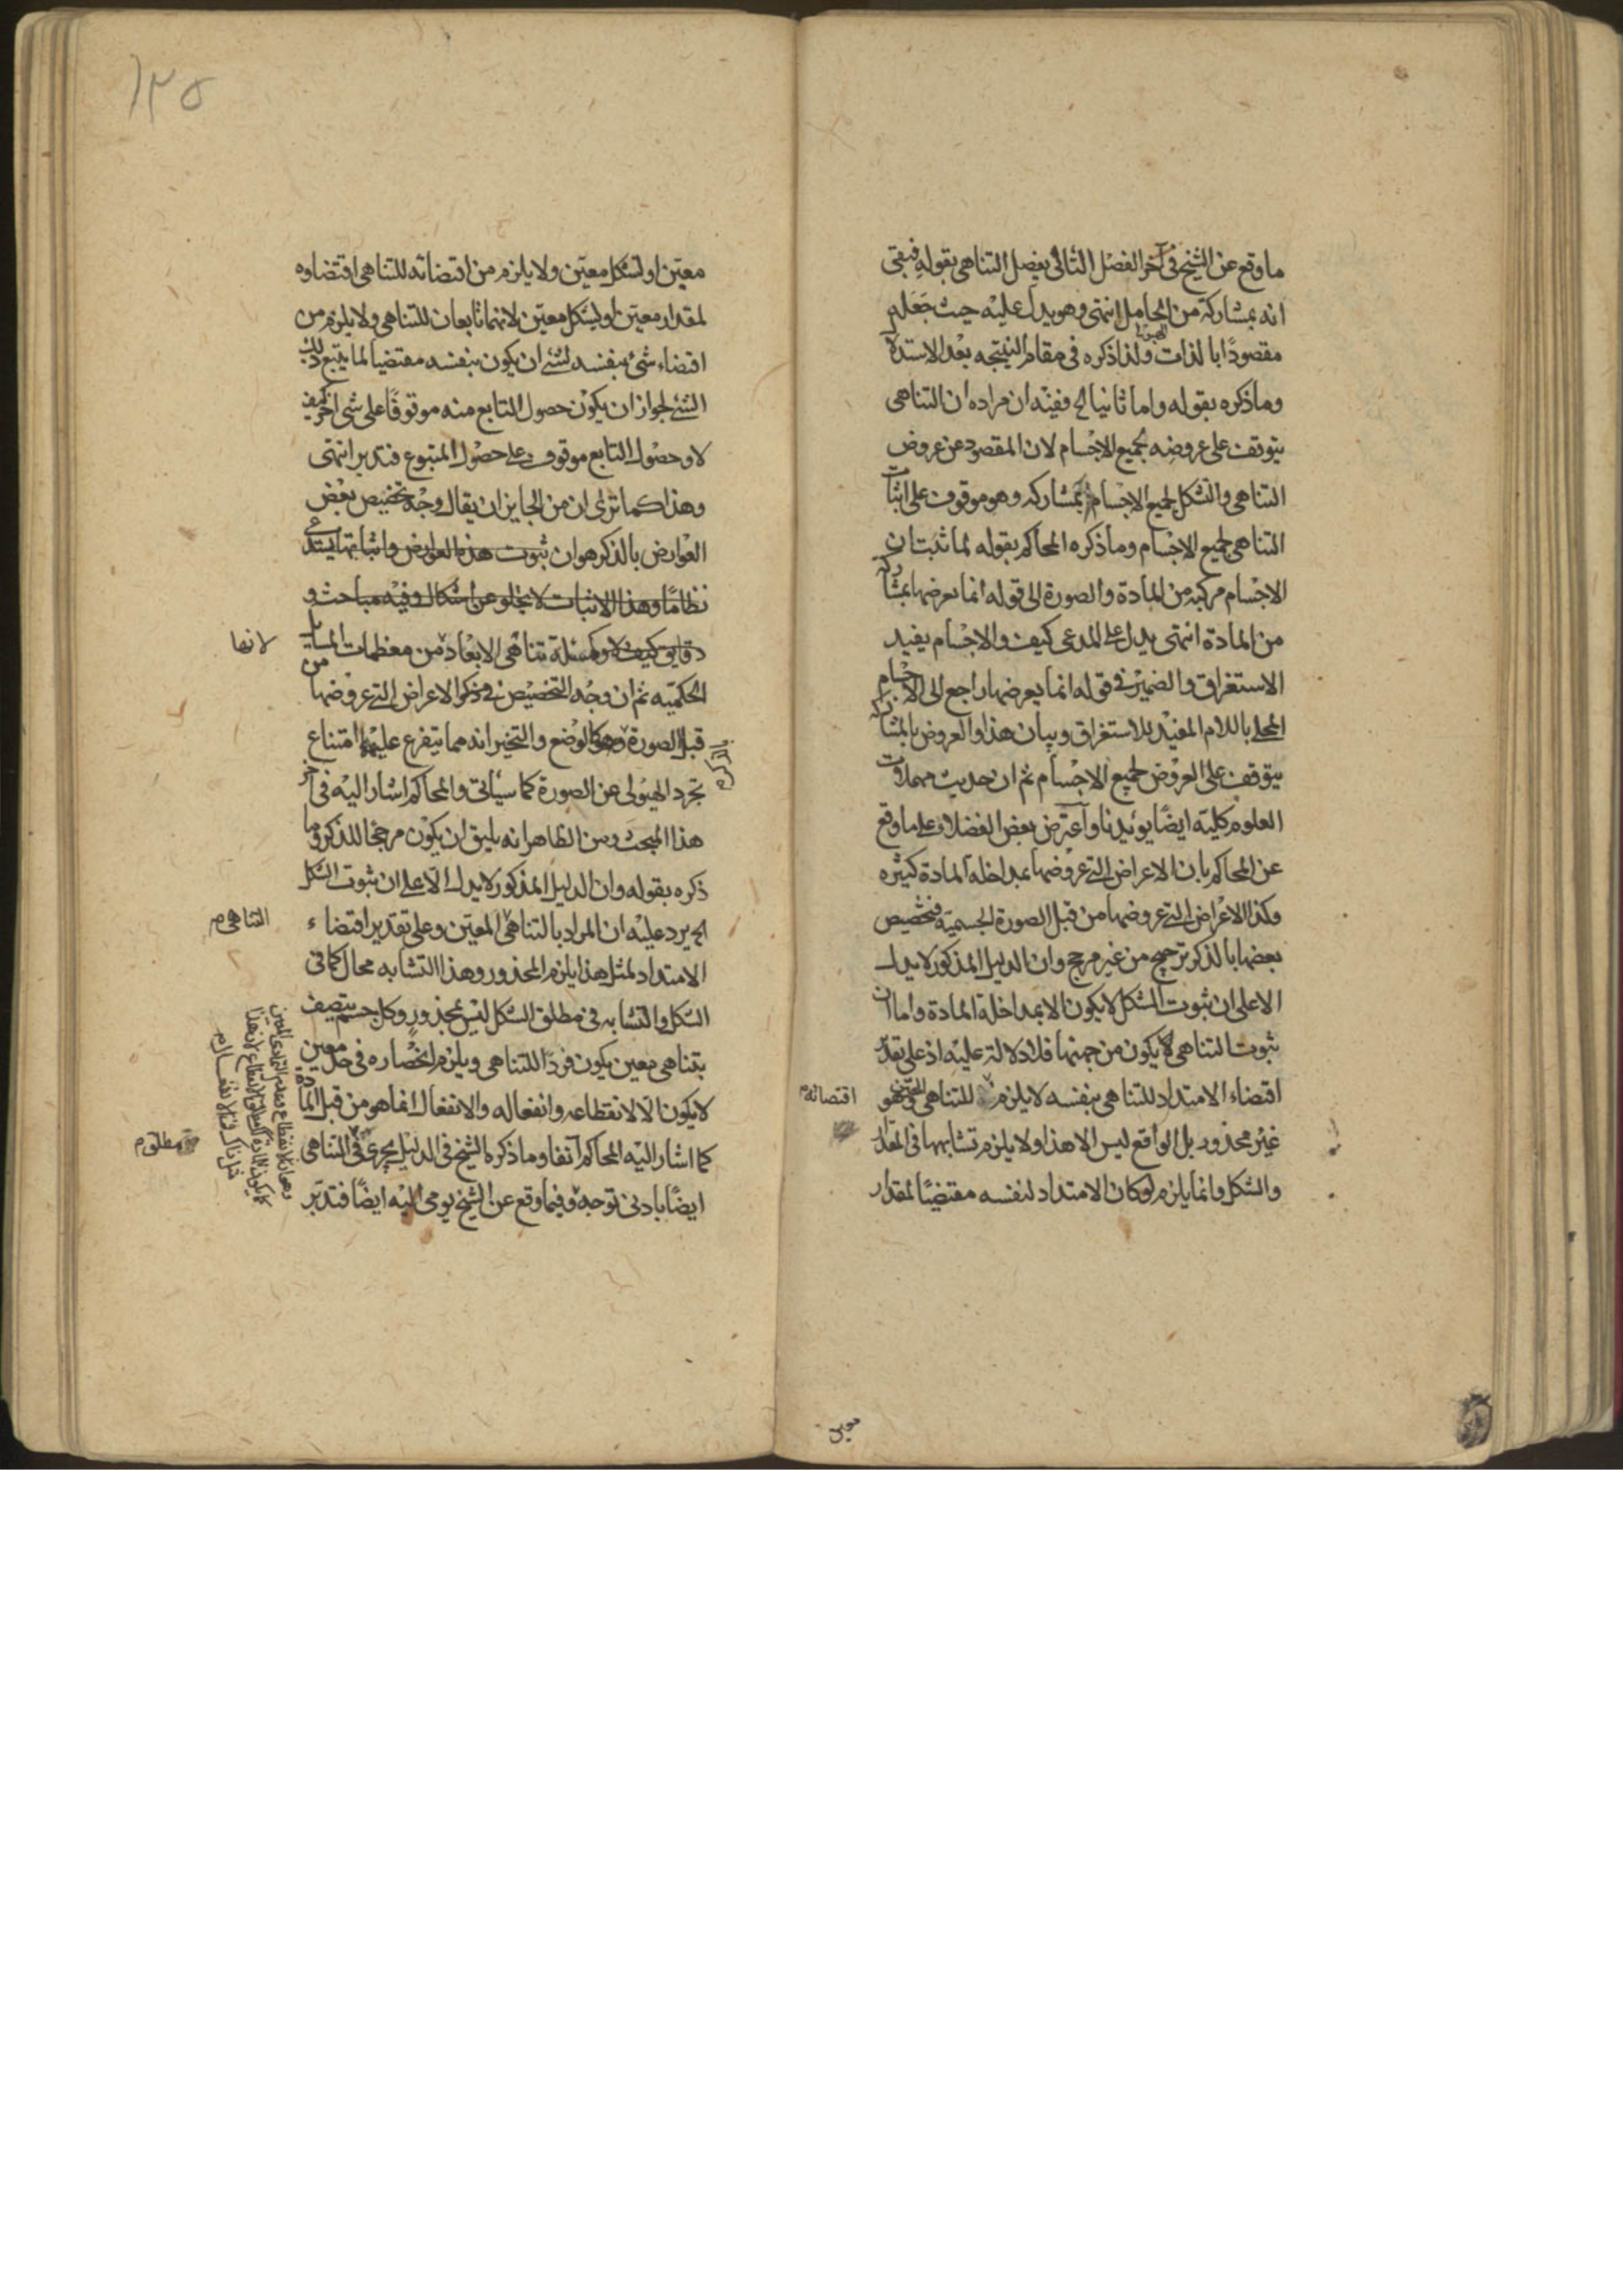 ما وقع عن الشيخ في آخر الفصل الثاني بفصل التناهي بقوله فبقي
انه بمشاركة من الحامل انتهى وهو يدل عليه حيث جعله
مقصودًا بالذات ولذا ذكره في مقام النتيجه بعد الاستدلال
وما ذكره بقوله واما ثانيا الخ ففيه ان مراده ان التناهي
يتوقف على عروضه لجميع الاجسام لان المقصود عن عروض
التناهي والشكل لجميع الاجسام بمشاركه وهو موقوف على اثبات
التناهي لجميع الاجسام وما ذكره المحاكم بقوله لما ثبت ان
الاجسام مركبه من المادة والصورة الى قوله انما يعرضها بمشاركه
من المادة انتهى يدل على المدعى كيف والاجسام يفيد
الاستغراق والضمير في قوله انما يعرضها راجع الى الاجسام
المحلى باللام المفيد للاستغراق وبيان هذا والعروض بالمشاركه
يتوقف على العروض لجميع الاجسام ثم ان حديث مهملات
العلوم كلية ايضًا يؤيدنا واعترض بعض الفضلاء على ما وقع
عن المحاكم بان الاعراض التي عروضها بمداخلة المادة كثيره
وكذا الاعراض التي عروضها من قبل الصورة الجسمية فتخصيص
بعضها بالذكر ترجيح من غير مرجح وان الدليل المذكور لا يدل
الا على ان ثبوت الشكل لا يكون الا بمداخلة المادة واما ان
ثبوت التناهي لا يكون من جهتها فلا دلالة عليه اذ على تقدير
اقتضاء الامتداد للتناهي بنفسه لا يلزم للتناهي وهو
اقتضائه م
غير محذور بل الواقع ليس الا هذا ولا يلزم تشابهها في المقدار
والشكل وانما يلزم لو كان الامتداد لنفسه مقتضيًا لمقدار
معين
١٣٥
معين او لشكل معين ولا يلزم من اقتضائه للتناهي اقتضاؤه
لمقدار معين او لشكل معين لانهما تابعان للتناهي ولا يلزم من
اقتضاء شئ بنفسه لشئ ان يكون بنفسه مقتضيا لما يتبع ذلك
الشئ لجواز ان يكون حصول التابع منه موقوفًا على شئ آخر كيف
لا وحصول التابع موقوف على حصول المتبوع فتدبر انتهى
وهذا كما ترى ان من الجايز ان يقال وجه تخصيص بعض
العوارض بالذكر هو ان ثبوت هذه العوارض واثباتها يستدعي
نظامًا وهذا الاثبات لا يخلو عن اشكال وفيه مباحث و
دقايق كيف لا ومسئلة تناهي الابعاد من معظمات المسايل
لانها
الحكمية ثم ان وجه التخصيص في ذكر الاعراض التي عروضها من
قبل الصورة وهو كالوضع والتحيز انه مما يتفرع عليهما امتناع
تجرد الهيولى عن الصورة كما سيأتي والمحاكم اشار اليه في آخر
هذا المبحث ومن الظاهر انه يليق ان يكون مرجحًا للذكر وما
ذكره بقوله وان الدليل المذكور لا يدل الا على ان ثبوت الشكل
الخ يرد عليه ان المراد بالتناهي المعين وعلى تقدير اقتضاء
التناهي م
الامتداد لمثل هذا يلزم المحذور وهذا التشابه محال كما في
الشكل والتشابه في مطلق الشكل ليس بمحذور وكل جسم يتصف
بتناهي معين يكون فردًا للتناهي ويلزم انحصاره في حد معين
لا يكون الا لانقطاعه وانفعاله والانفعال انما هو من قبل المادة
كما اشار اليه المحاكم آنفا وما ذكره الشيخ في الدليل يجري في التناهي
مطلق م
ايضًا بادنى توجه وفيما وقع عن الشيخ يومى اليه ايضًا فتدبر